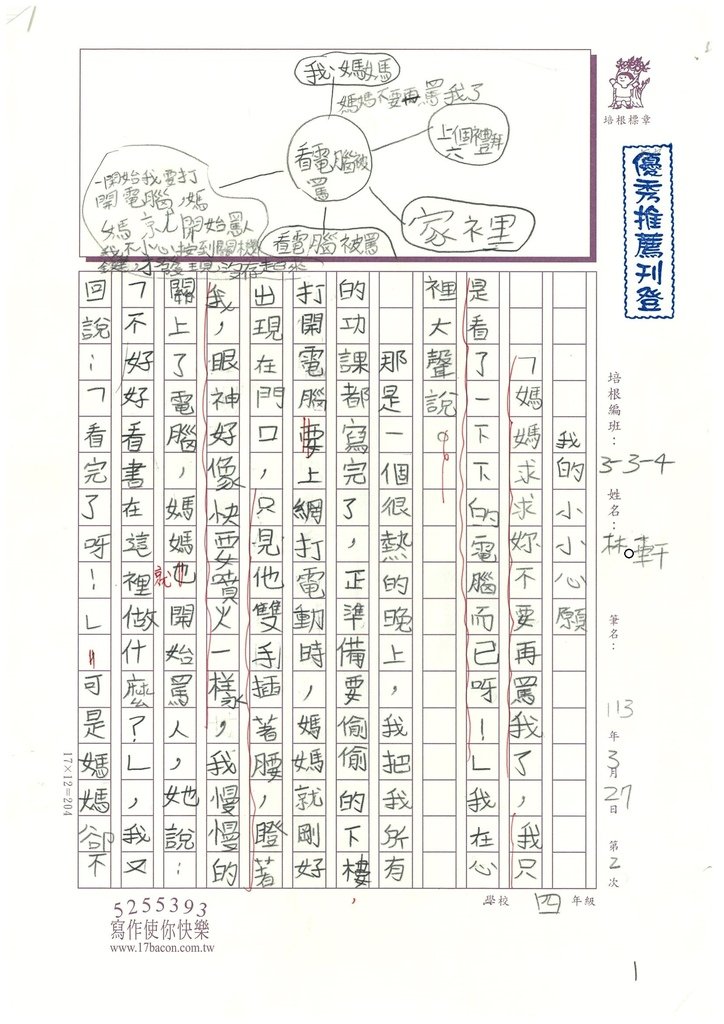 我.媽媽
媽媽不要再罵我了
上個禮拜
六
看電腦被
罵
一開始我要打
開電腦,媽
媽就開始罵人
我不小心按到關機
鍵,才發現沒存起來
看電腦被罵
家裡
培根標章
優秀推薦刊登
培根編班:
3-3-4
姓名:
林 軒
筆名:
113年3月27日 第2次
學校 四 年級
我的小小心願
「媽媽求求妳不要再罵我了,我只
是看了一下下的電腦而已呀!」我在心
裡大聲說。
那是一個很熱的晚上,我把我所有
的功課都寫完了,正準備要偷偷的下樓,
打開電腦要上網打電動時,媽媽就剛好
出現在門口,只見他雙手插著腰,瞪著
我,眼神好像快要噴火一樣,我慢慢的
關上了電腦,媽媽也就開始罵人,她說:
「不好好看書在這裡做什麼?」,我又
回說:「看完了呀!」可是媽媽卻不
17×12=204
5255393
寫作使你快樂
www.17bacon.com.tw
1